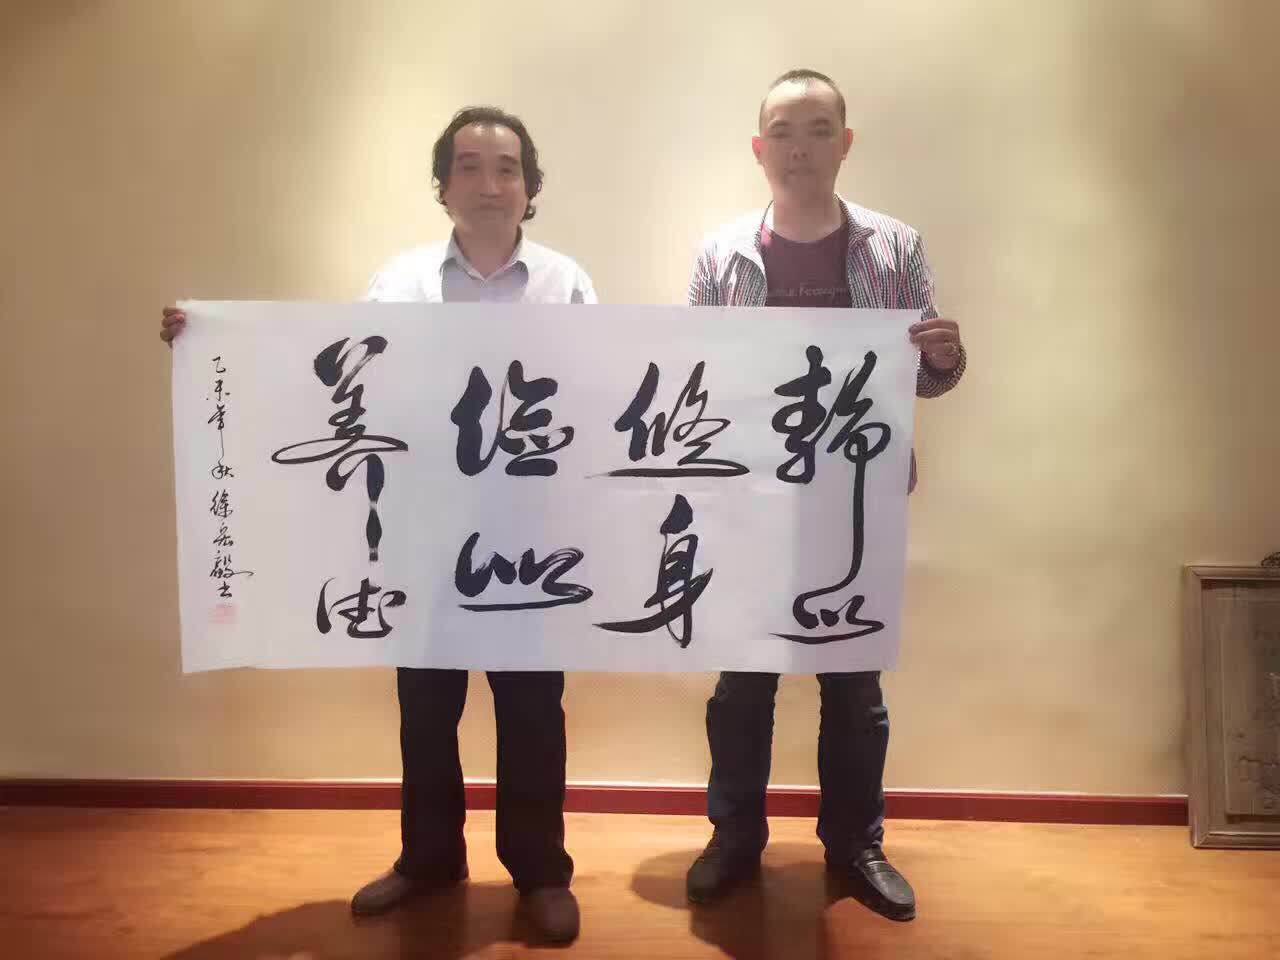 静以
修身
俭以
养德
乙未年秋徐毅书